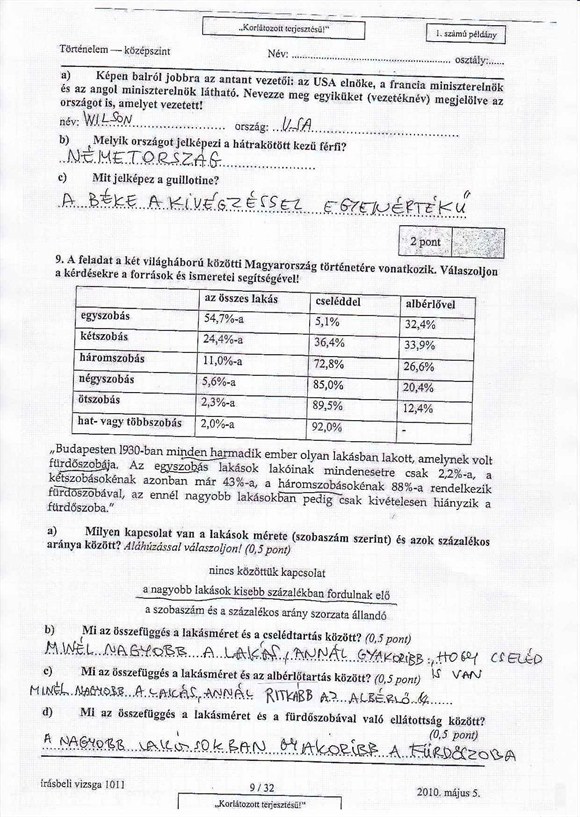 „Korlátozott terjesztésű!”
1. számú példány
Történelem — középszint Név: ........................ osztály:......
a) Képen balról jobbra az antant vezetői: az USA elnöke, a francia miniszterelnök
és az angol miniszterelnök látható. Nevezze meg egyiküket (vezetéknév) megjelölve az
országot is, amelyet vezetett!
név: WILSON ország: USA
b) Melyik országot jelképezi a hátrakötött kezű férfi?
NÉMETORSZÁG
c) Mit jelképez a guillotine?
A BÉKE A KIVÉGZÉSSEL EGYENÉRTÉKŰ
2 pont
9. A feladat a két világháború közötti Magyarország történetére vonatkozik. Válaszoljon
a kérdésekre a források és ismeretei segítségével!
az összes lakás cseléddel albérlővel
egyszobás 54,7%-a 5,1% 32,4%
kétszobás 24,4%-a 36,4% 33,9%
háromszobás 11,0%-a 72,8% 26,6%
négyszobás 5,6%-a 85,0% 20,4%
ötszobás 2,3%-a 89,5% 12,4%
hat- vagy többszobás 2,0%-a 92,0% -
„Budapesten 1930-ban minden harmadik ember olyan lakásban lakott, amelynek volt
fürdőszobája. Az egyszobás lakások lakóinak mindenesetre csak 2,2%-a, a
kétszobásokénak azonban már 43%-a, a háromszobásokénak 88%-a rendelkezik
fürdőszobával, az ennél nagyobb lakásokban pedig csak kivételesen hiányzik a
fürdőszoba.”
a) Milyen kapcsolat van a lakások mérete (szobaszám szerint) és azok százalékos
aránya között? Aláhúzással válaszoljon! (0,5 pont)
nincs közöttük kapcsolat
a nagyobb lakások kisebb százalékban fordulnak elő
a szobaszám és a százalékos arány szorzata állandó
b) Mi az összefüggés a lakásméret és a cselédtartás között? (0,5 pont)
MINÉL NAGYOBB A LAKÁS, ANNÁL GYAKORIBB, HOGY CSELÉD
IS VAN
c) Mi az összefüggés a lakásméret és az albérlőtartás között? (0,5 pont)
MINÉL NAGYOBB A LAKÁS, ANNÁL RITKÁBB AZ ALBÉRLŐ
d) Mi az összefüggés a lakásméret és a fürdőszobával való ellátottság között?
(0,5 pont)
A NAGYOBB LAKÁSOKBAN GYAKORIBB A FÜRDŐSZOBA
írásbeli vizsga 1011 9 / 32 2010. május 5.
„Korlátozott terjesztésű!”